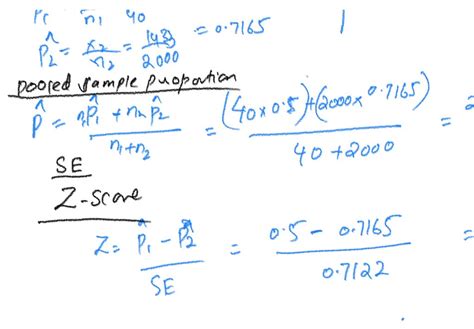 n₁ 40
p̂₂ = x₂/n₂ = 1433/2000 = 0.7165
poored sample puopoution
p̂ = n₁p̂₁ + n₂p̂₂ / n₁+n₂ = (40×0.5)+(2000×0.7165) / 40+2000 =
SE
Z-score
Z = p̂₁ - p̂₂ / SE = 0.5 - 0.7165 / 0.7122 =